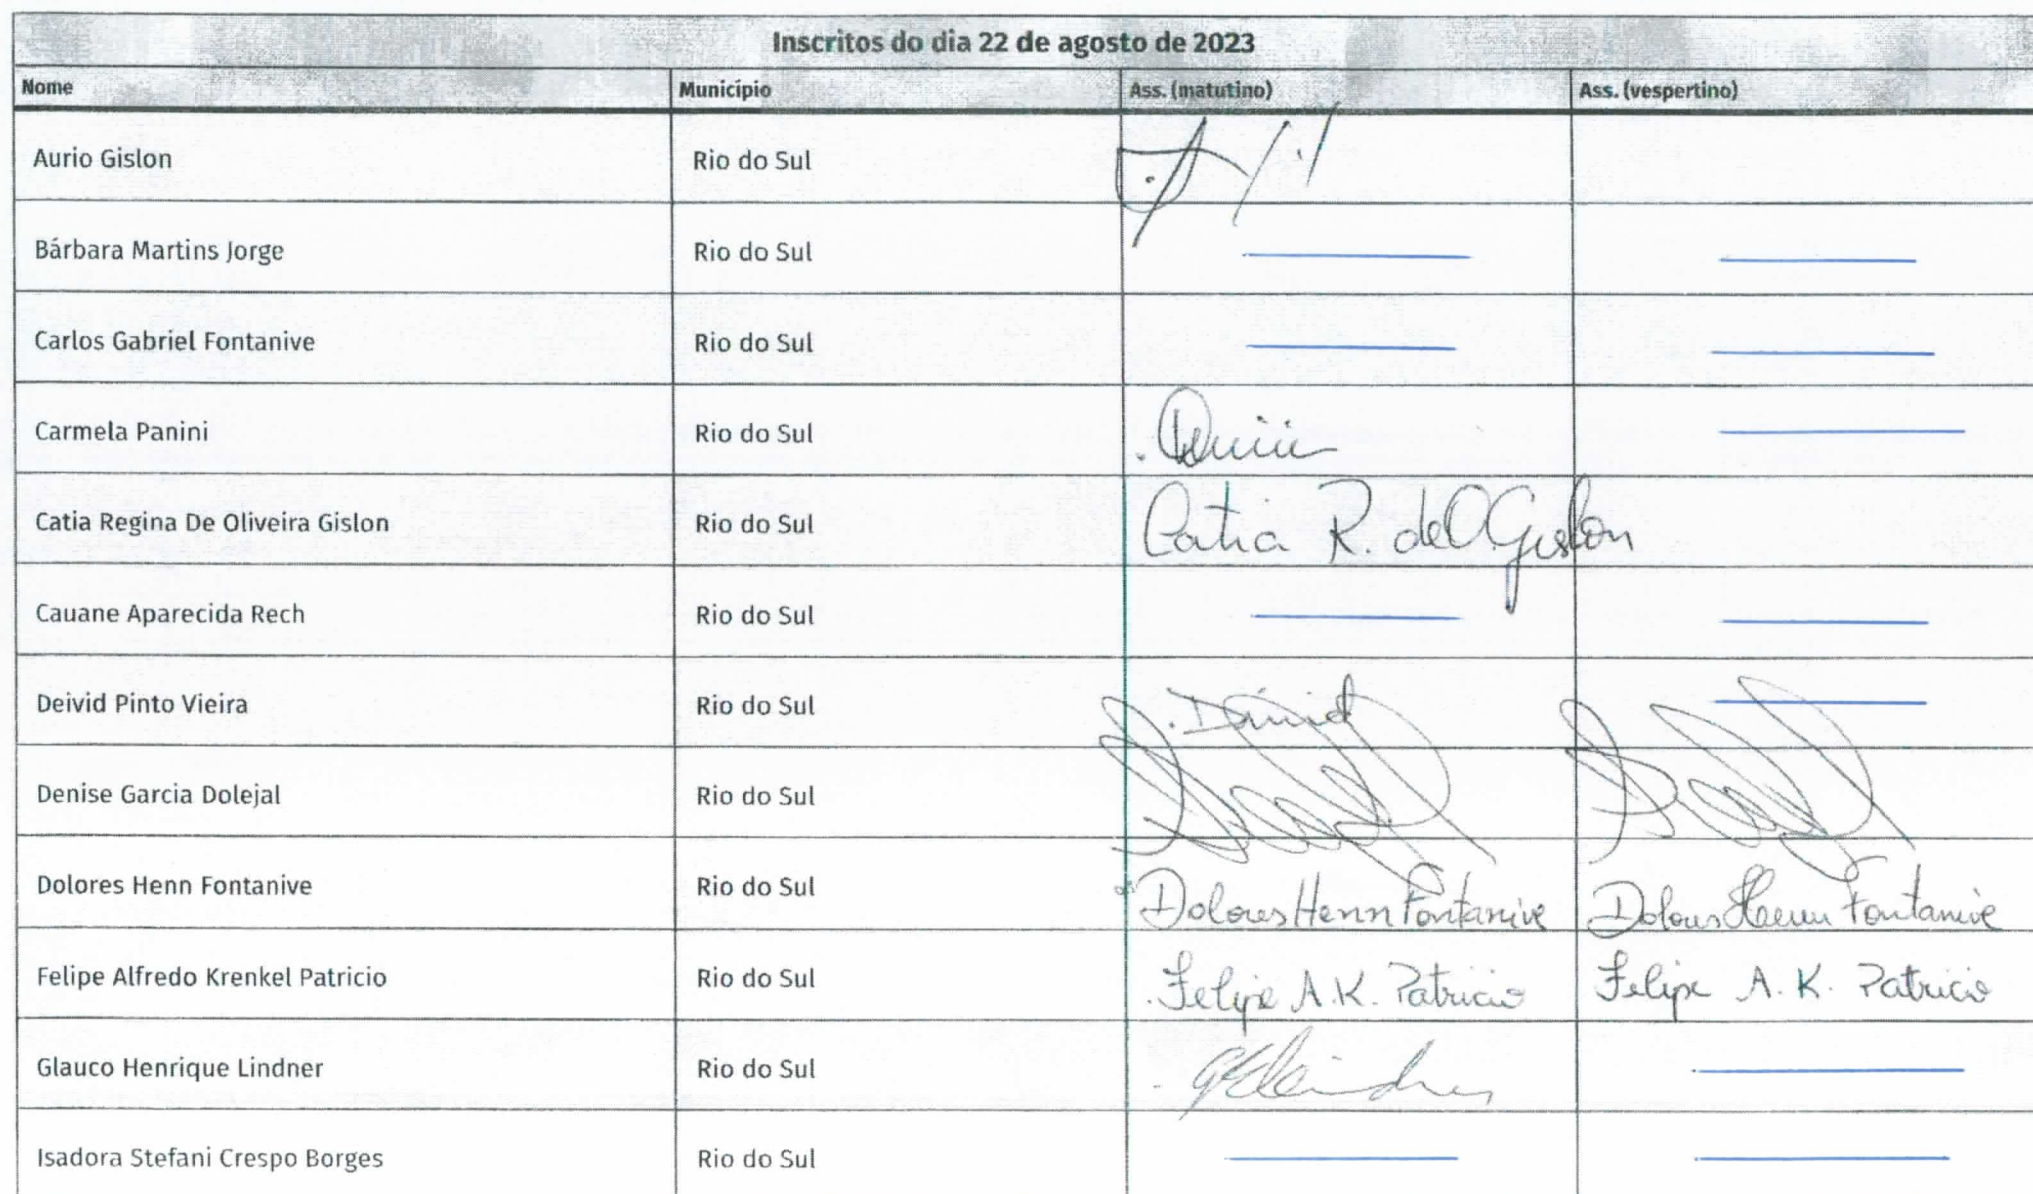 Inscritos do dia 22 de agosto de 2023
Nome Município Ass. (matutino) Ass. (vespertino)
Aurio Gislon Rio do Sul
Bárbara Martins Jorge Rio do Sul
Carlos Gabriel Fontanive Rio do Sul
Carmela Panini Rio do Sul
Catia Regina De Oliveira Gislon Rio do Sul Catia R. de O. Gislon
Cauane Aparecida Rech Rio do Sul
Deivid Pinto Vieira Rio do Sul
Denise Garcia Dolejal Rio do Sul
Dolores Henn Fontanive Rio do Sul Dolores Henn Fontanive Dolores Henn Fontanive
Felipe Alfredo Krenkel Patricio Rio do Sul Felipe A. K. Patricio Felipe A. K. Patricio
Glauco Henrique Lindner Rio do Sul
Isadora Stefani Crespo Borges Rio do Sul